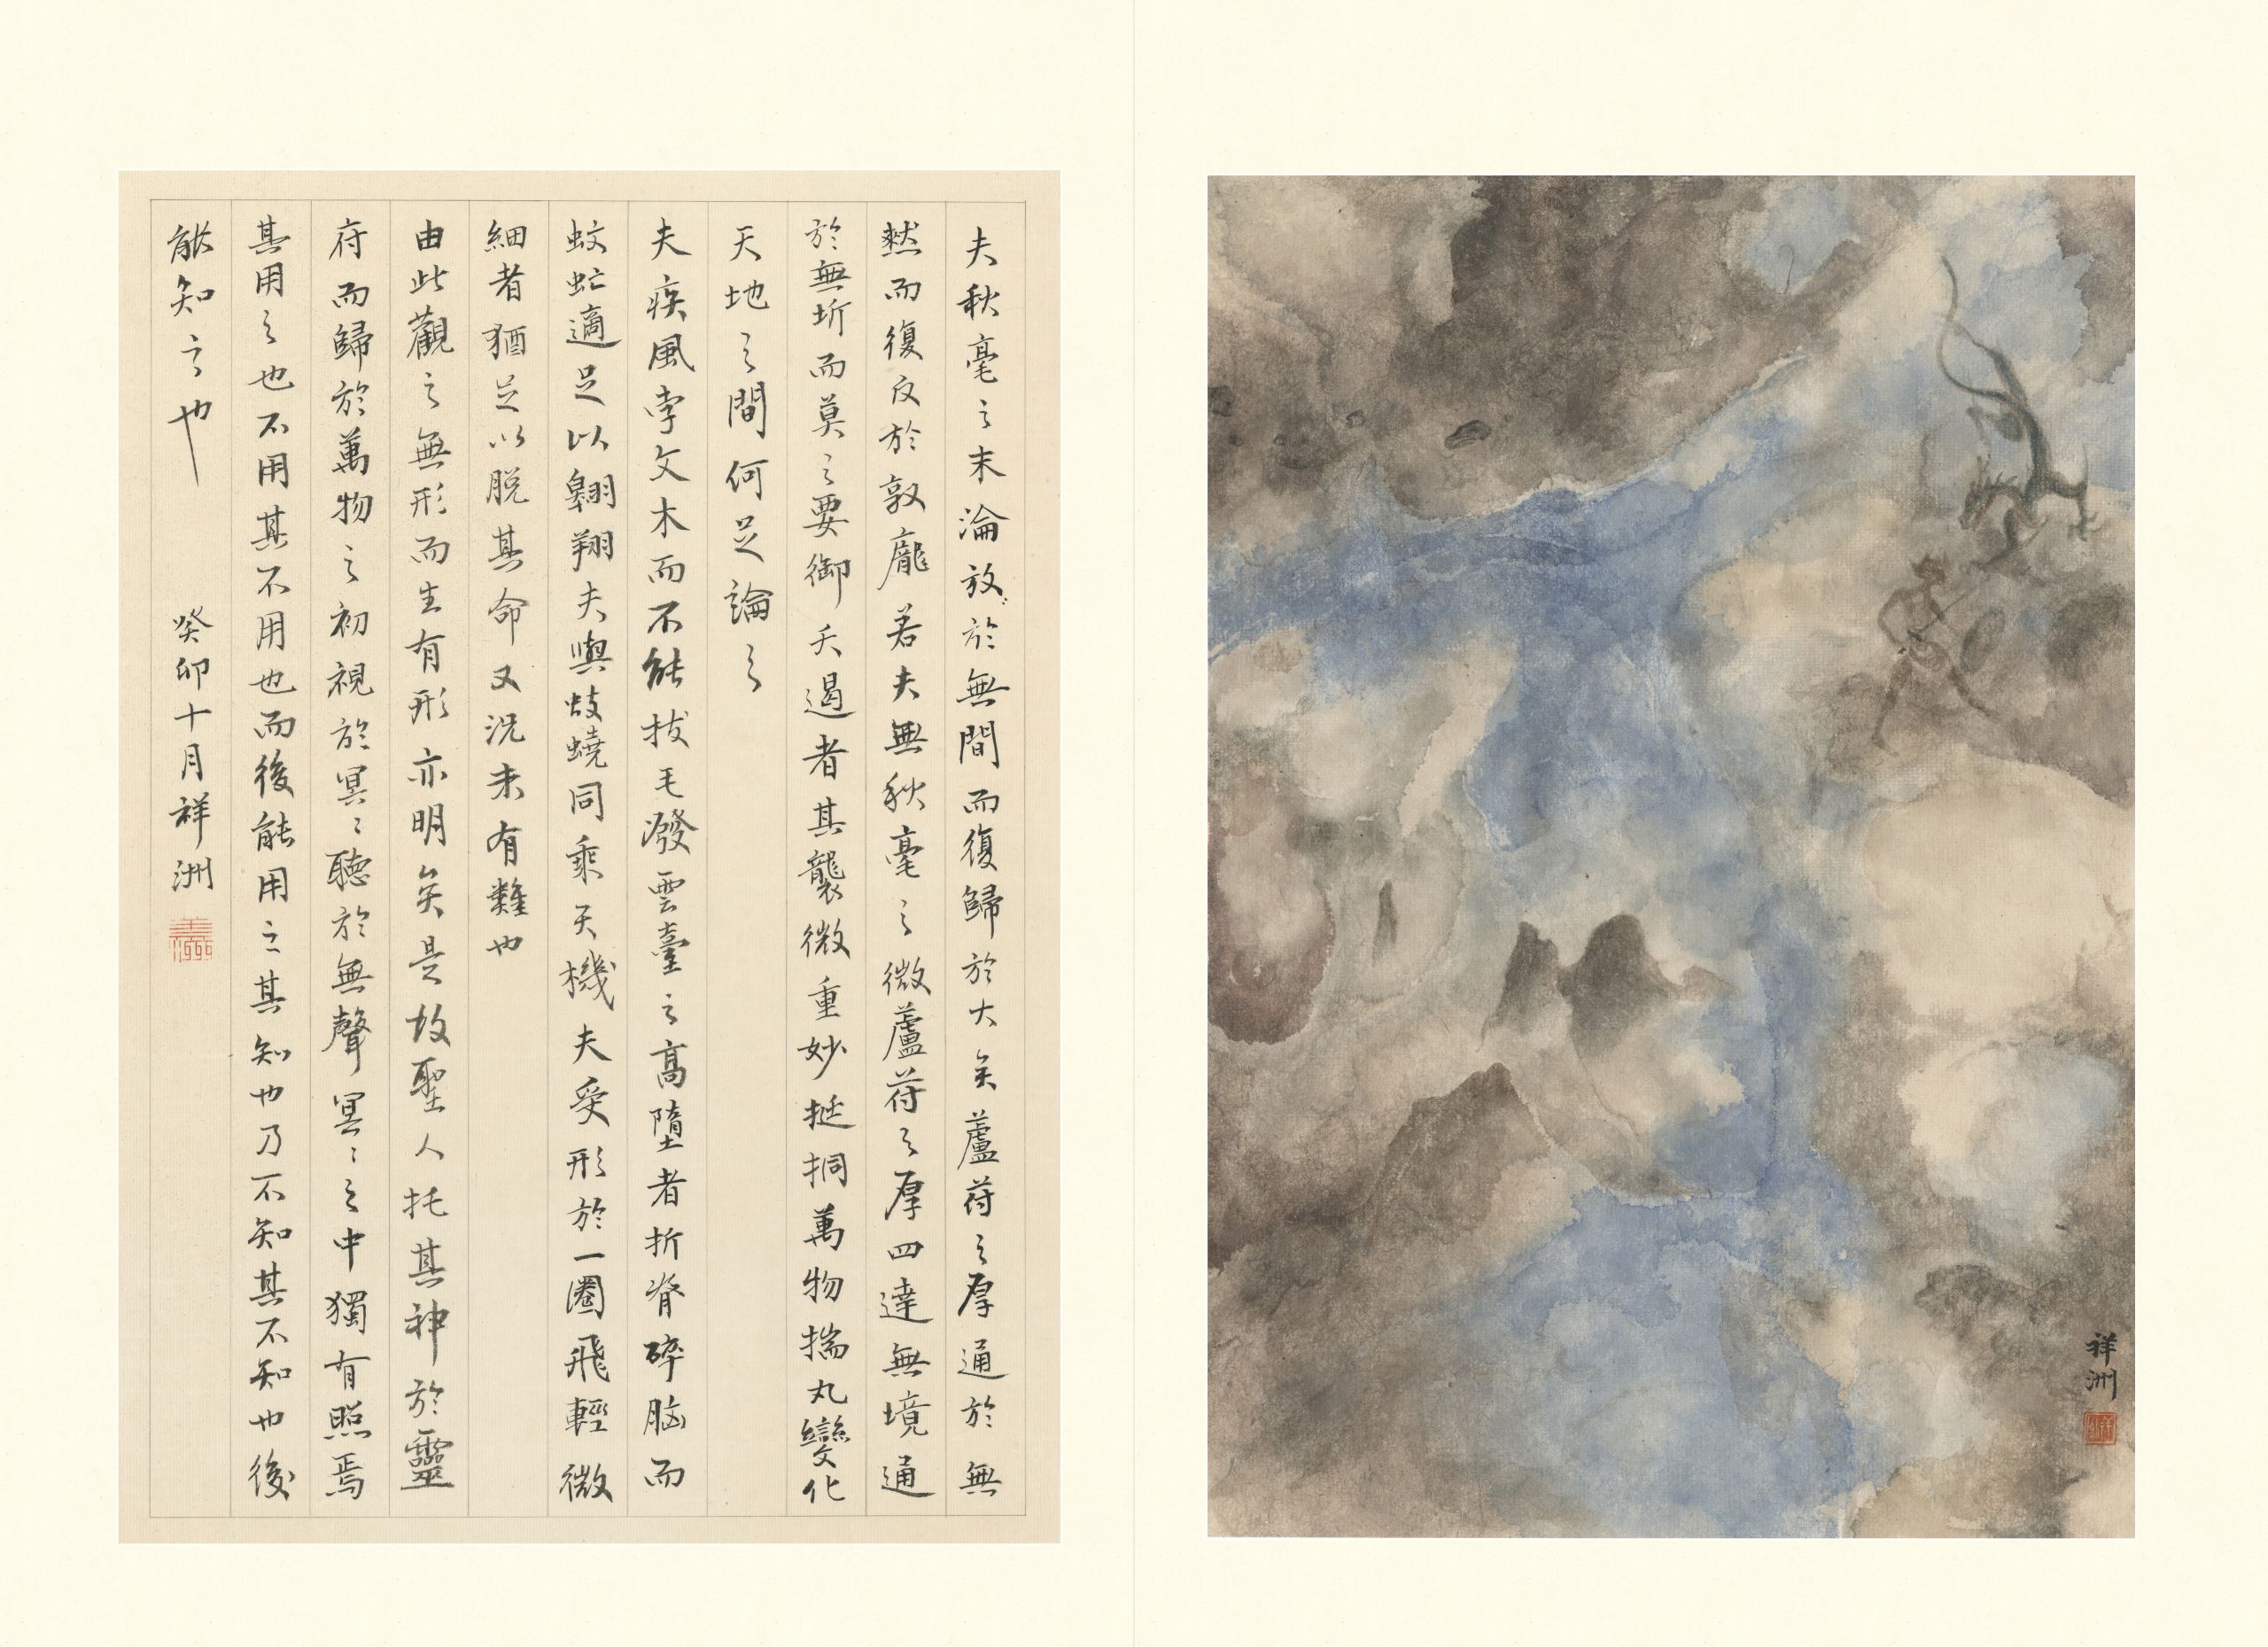 夫秋毫之末淪於無間而復歸於大矣蘆苻之厚通於無
㙬而復反於敦龐若夫無秋毫之微蘆苻之厚四達無境通
於無圻而莫之要御夭遏者其襲微重妙挺挏萬物揣丸變化
天地之間何足論之
夫疾風孛文木而不能拔毛潑雲臺之高墮者折脊碎脳而
蚊虻適足以翱翔夫與蚑蟯同乘天機夫受形於一圈飛輕微
細者猶足以脱其命又况未有類也
由此觀之無形而生有形亦明矣是故聖人托其神於靈
府而歸於萬物之初視於冥冥聽於無聲冥冥之中獨有照焉
其用之也不用其不用也而後能用之其知也乃不知其不知也後
能知之也 癸卯十月祥洲
祥洲